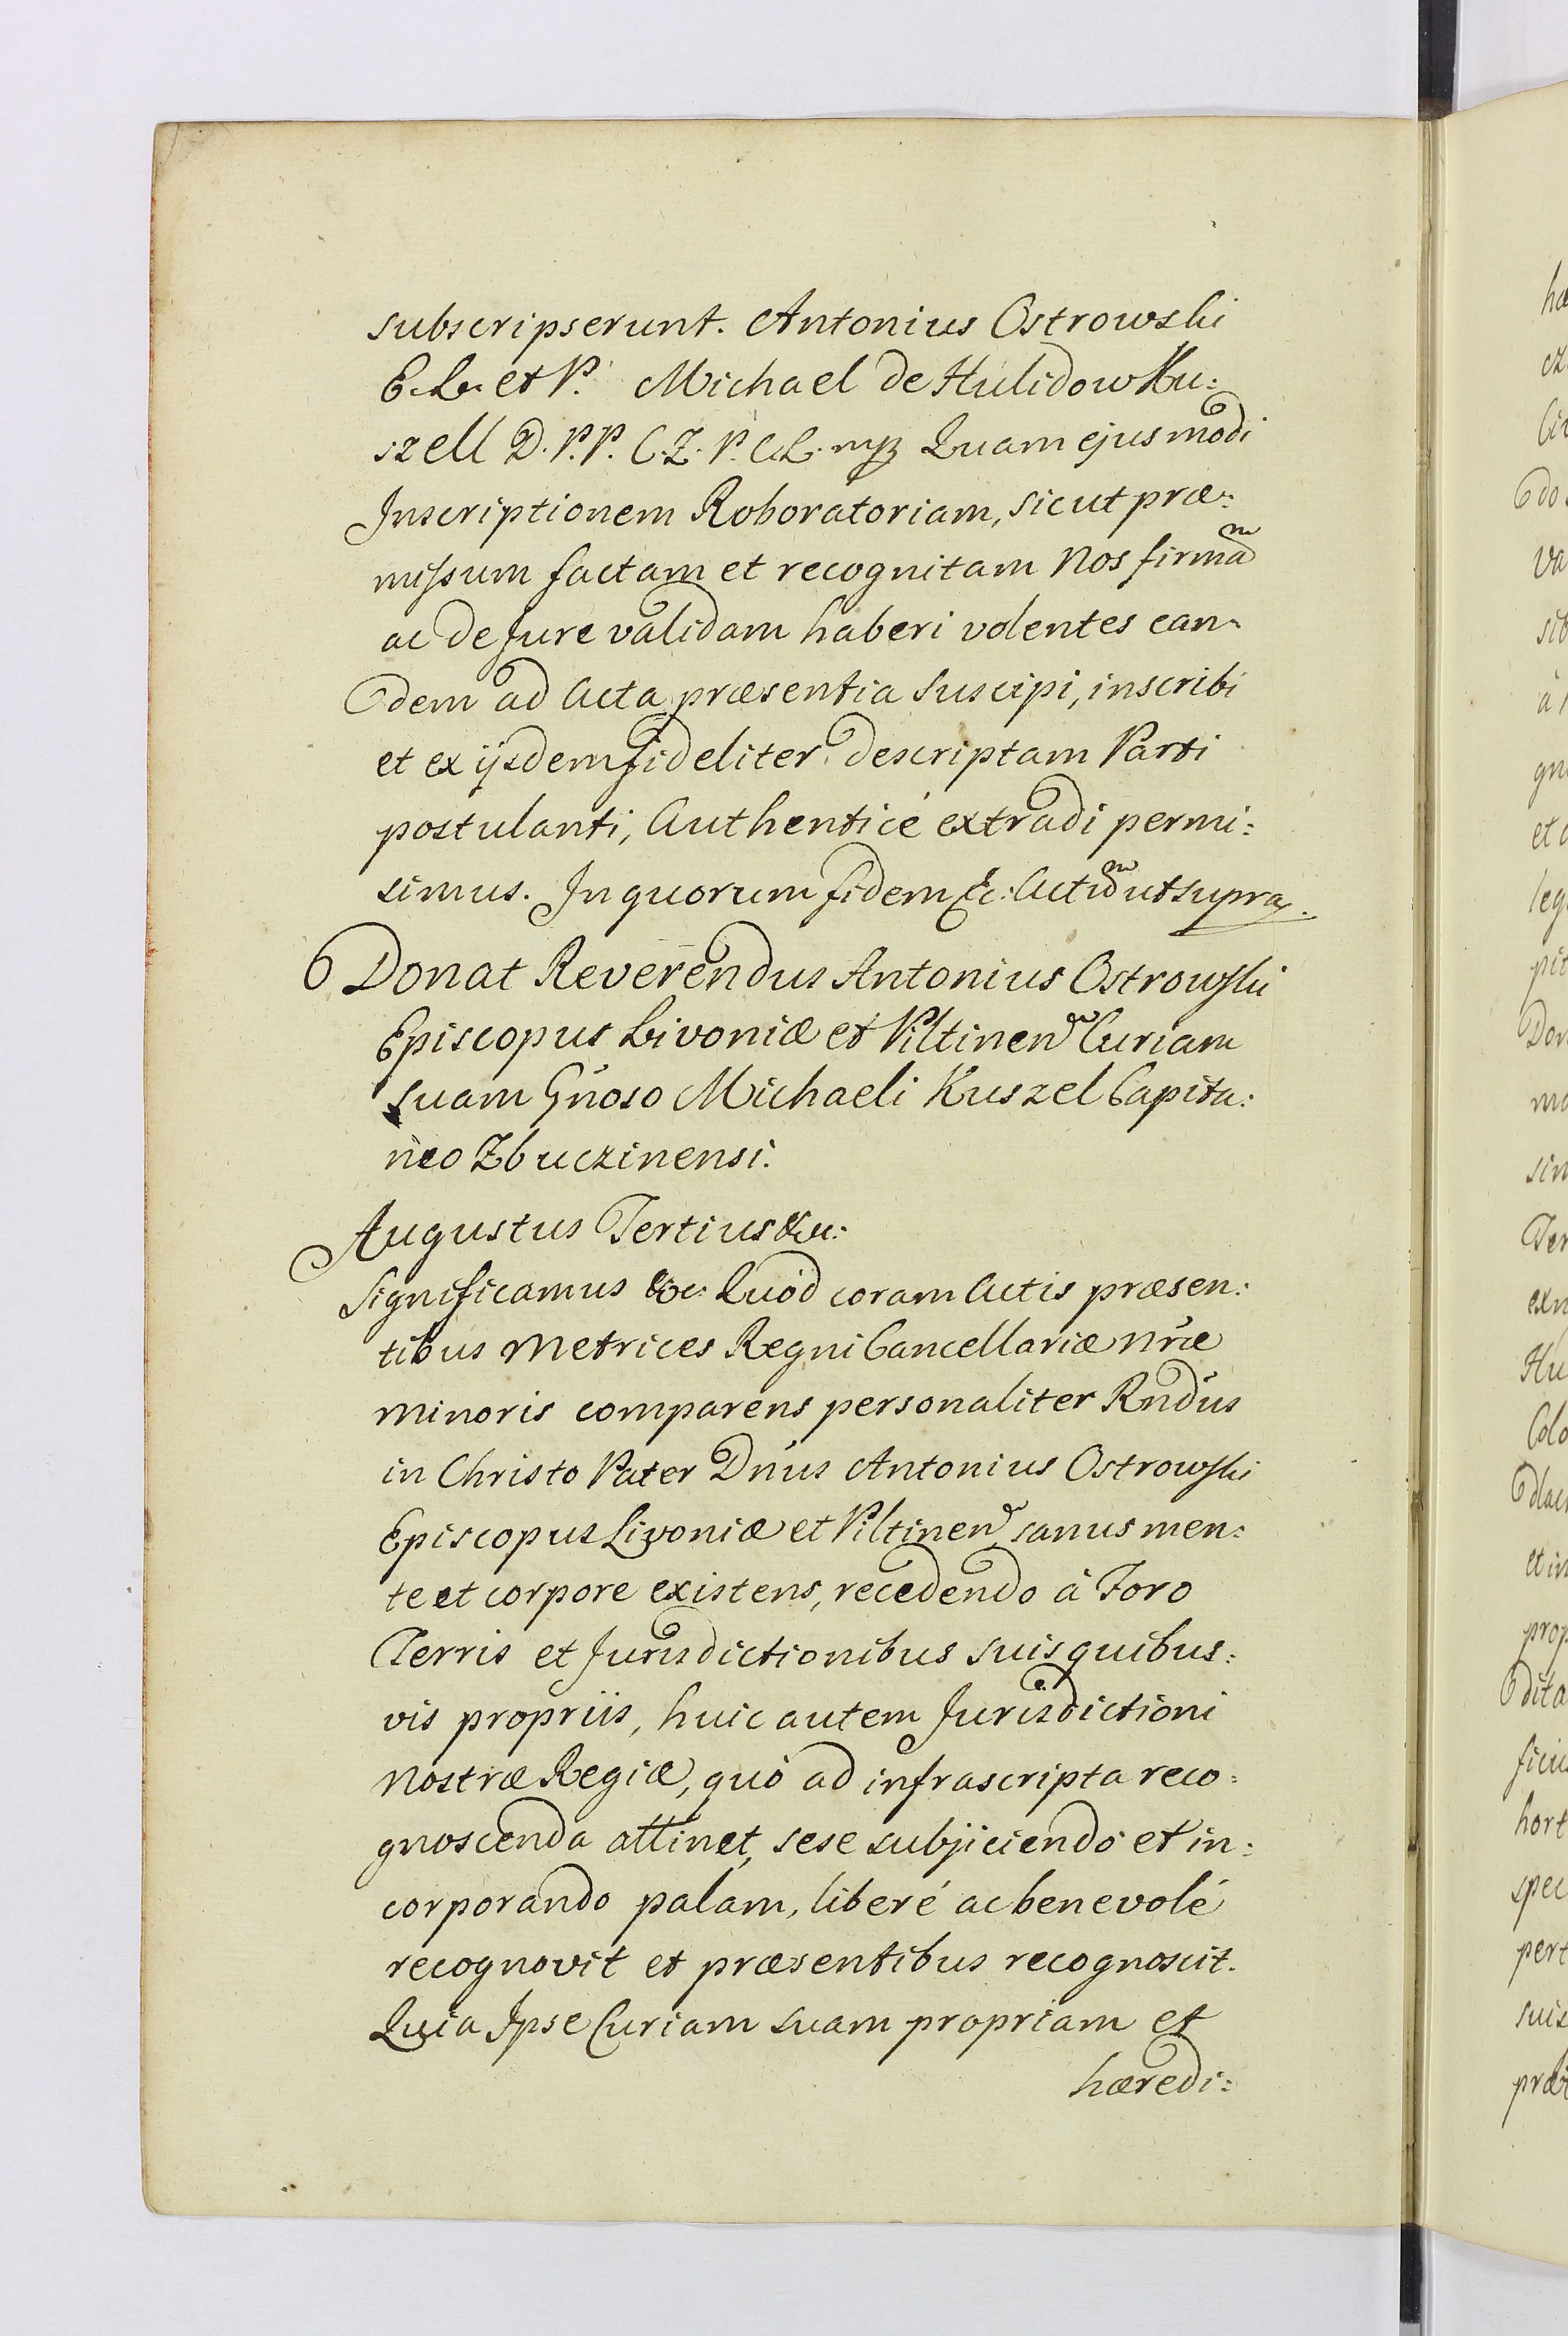 subscripserunt. Antonius Ostrowski
E. L. et P. Michael de Hulidow Ku:
szell D. P. P. C. Z. P. C. L. mp Quam ejusmodi
Inscriptionem Roboratoriam, sicut præ:
missum factam et recognitam Nos firmam
ac de Jure validam haberi volentes ean:
dem ad Acta præsentia suscipi, inscribi
et ex ijsdem fideliter descriptam Parti
postulanti, Authenticé extradi permi:
simus. In quorum fidem &c: Actum ut supra.
6 Donat Reverendus Antonius Ostrowski
Episcopus Livoniæ et Piltinen Curiam
suam Gnoso Michaeli Kuszel Capita:
neo Zbuczinensi.
Augustus Tertius &c:
Significamus &c: Quód coram Actis præsen:
tibus Metrices Regni Cancellariæ Nræ
minoris comparens personaliter Rndus
in Christo Pater Dnus Antonius Ostrowski
Episcopus Livoniæ et Piltinen sanus men:
te et corpore existens, recedendo à Foro
Terris et Jurisdictionibus suis quibus:
vis propriis, huic autem Jurisdictioni
Nostræ Regiæ, quò ad infrascripta reco:
gnoscenda attinet, sese subjiciendo et in:
corporando palam, liberé ac benevolé
recognovit et præsentibus recognoscit.
Quia Ipse Curiam suam propriam et
hæredi: